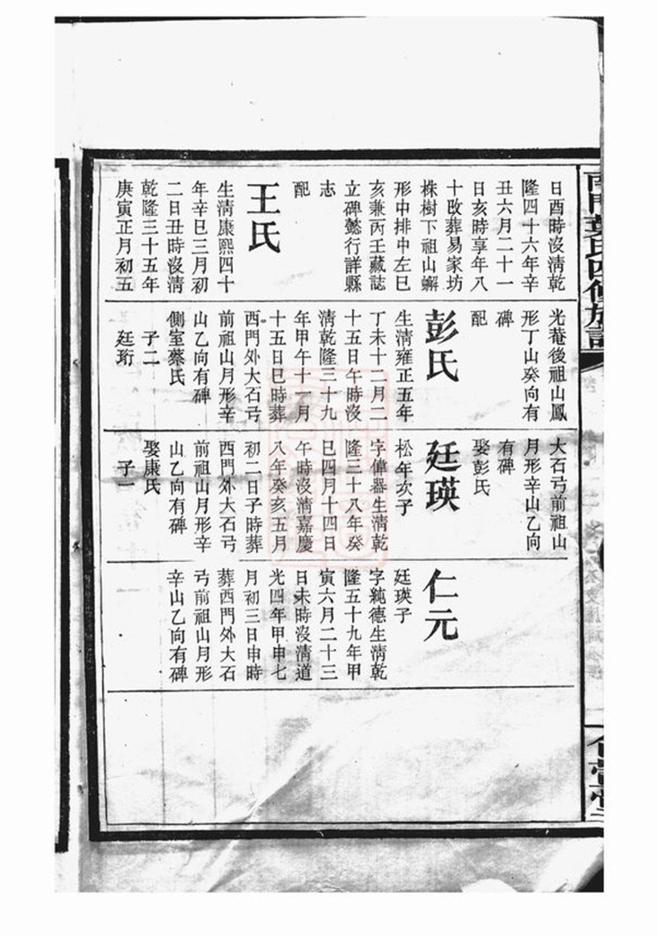 日酉時沒清乾
隆四十六年辛
丑六月二十一
日亥時享年八
十改葬易家坊
株樹下祖山蠏
形中排中左巳
亥兼丙壬藏誌
立碑懿行詳縣
志
配
王氏
生清康熙四十
年辛巳三月初
二日丑時沒清
乾隆三十五年
庚寅正月初五
光菴後祖山鳳
形丁山癸向有
碑
配
彭氏
生清雍正五年
丁未十二月二
十五日午時沒
清乾隆三十九
年甲午十一月
十五日巳時葬
西門外大石弓
前祖山月形辛
山乙向有碑
側室蔡氏
子二
廷珩
大石弓前祖山
月形辛山乙向
有碑
娶彭氏
廷瑛
松年次子
字偉器生清乾
隆三十八年癸
巳四月十四日
午時沒清嘉慶
八年癸亥五月
初二日子時葬
西門外大石弓
前祖山月形辛
山乙向有碑
娶康氏
子一
仁元
廷瑛子
字純德生清乾
隆五十九年甲
寅六月二十三
日未時沒清道
光四年甲申七
月初三日申時
葬西門外大石
弓前祖山月形
辛山乙向有碑